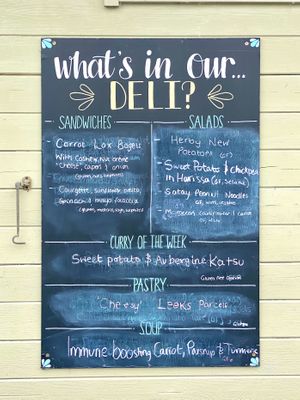 what's in Our...
DELI?
SANDWICHES
- Carrot Lox Bagel
With Cashew nut crème
"cheese", capers & onion
- Courgette, sunflower pesto,
spinach & mayo focaccia
SALADS
- Herby New
Potatoes (GF)
- Sweet Potato & chickpea
in Harissa (GF, Sesame)
- Satay Peanut Noodles
- Moroccan cauliflower & carrot
CURRY OF THE WEEK
Sweet potato & Aubergine Katsu
Gluten free option
PASTRY
'Cheesy' Leeks Parcels
SOUP
Immune boosting Carrot, Parsnip & Turmeric